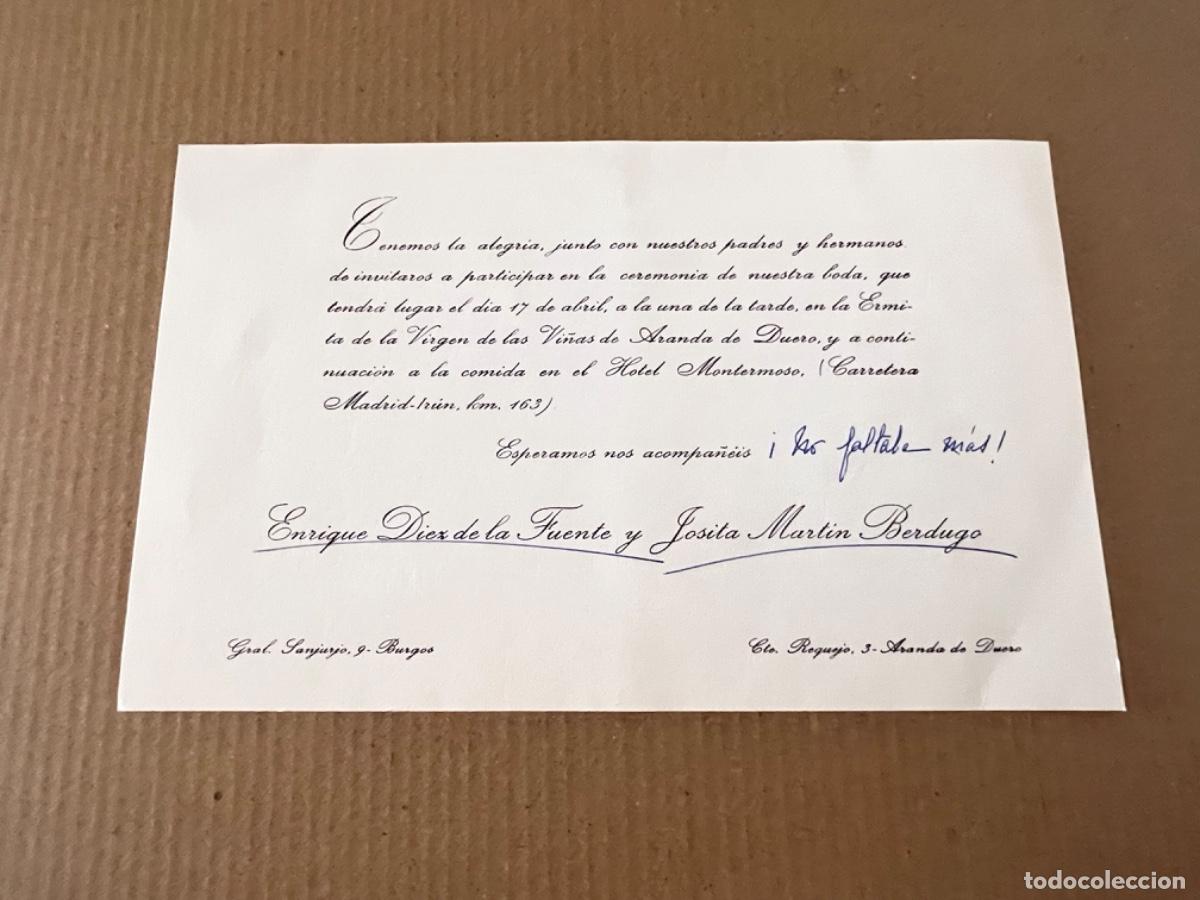 Tenemos la alegria, junto con nuestros padres y hermanos
de invitaros a participar en la ceremonia de nuestra boda, que
tendrá lugar el dia 17 de abril, a la una de la tarde, en la Ermi-
ta de la Virgen de las Viñas de Aranda de Duero, y a conti-
nuación a la comida en el Hotel Montermoso, (Carretera
Madrid-Irún, km. 163)
Esperamos nos acompañéis ¡No faltaba más!
Enrique Diez de la Fuente y Josita Martin Berdugo
Gral. Sanjurjo, 9- Burgos
Cte. Requejo, 3- Aranda de Duero
todocoleccion